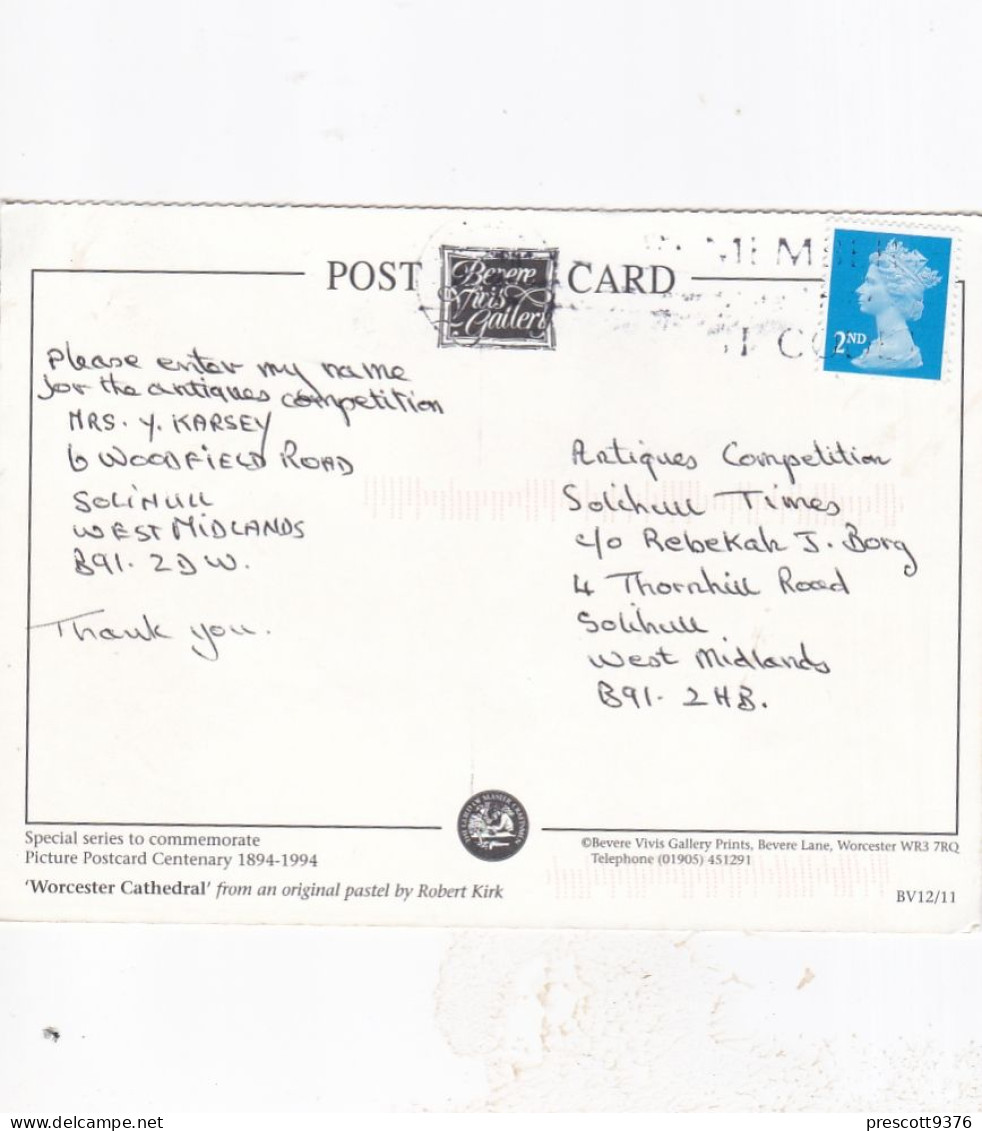 POST CARD
Bevere
Vivis
Gallery
2ND
Please enter my name
for the antiques competition
MRS. Y. KARSEY
6 WOODFIELD ROAD
SOLIHULL
WEST MIDLANDS
B91. 2DW.
Thank you.
Antiques Competition
Solihull Times
c/o Rebekah J. Borg
4 Thornhill Road
Solihull
West Midlands
B91. 2HB.
Special series to commemorate
Picture Postcard Centenary 1894-1994
'Worcester Cathedral' from an original pastel by Robert Kirk
©Bevere Vivis Gallery Prints, Bevere Lane, Worcester WR3 7RQ
Telephone (01905) 451291
BV12/11
prescott9376